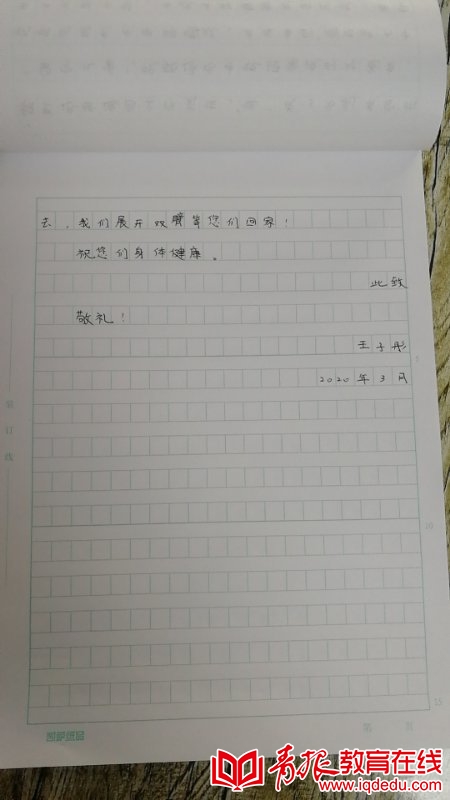 去，我们展开双臂等您们回家！
祝您们身体健康。
此致
敬礼！
王子彤
2020年3月
5
10
15
装订线
第 页
青报教育在线
www.iqdedu.com